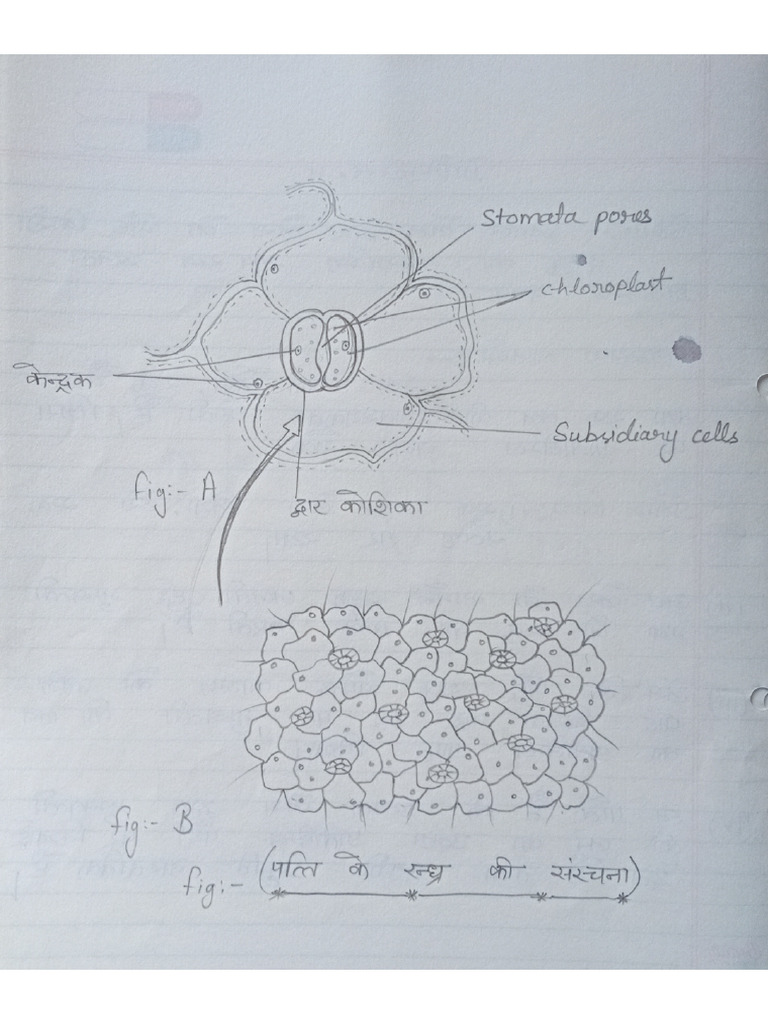 Stomata pores
chloroplast
केन्द्रक
Subsidiary cells
fig:- A
द्वार कोशिका
fig:- B
fig:- (पत्ति के रन्ध्र की संरचना)